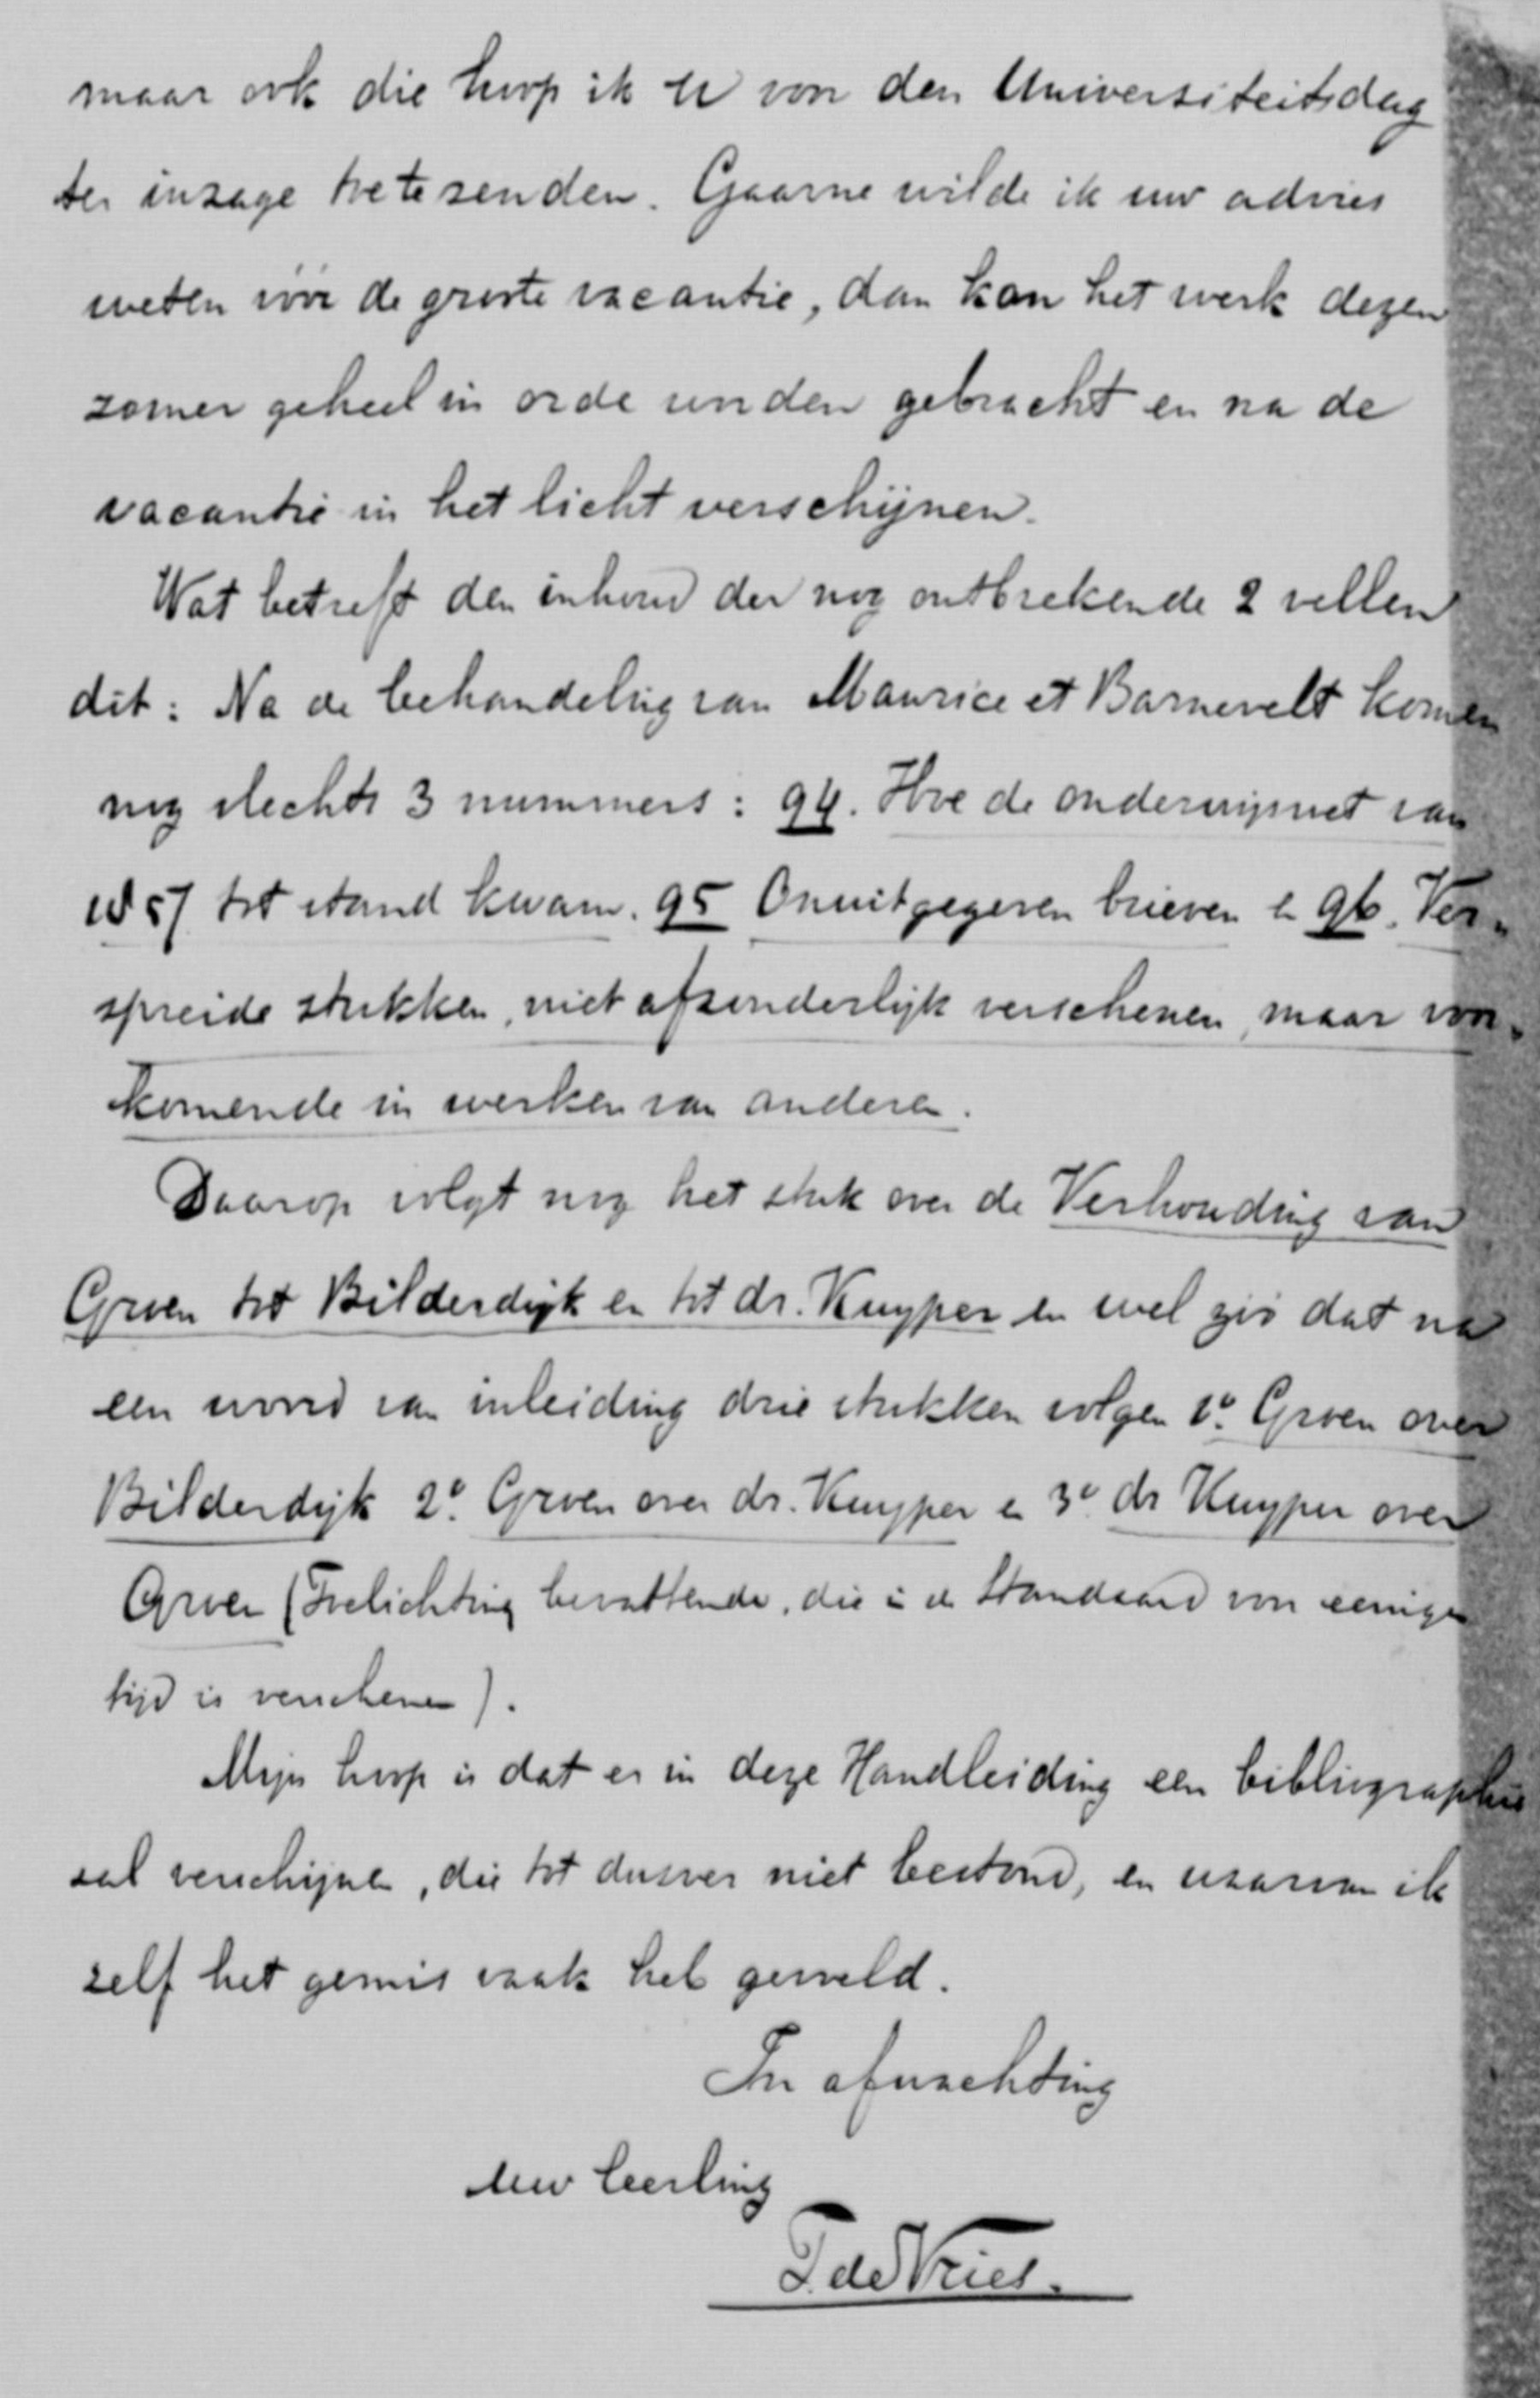 maar ook die hoop ik U voor den Universiteitsdag
ter inzage toe te zenden. Gaarne wilde ik uw advies
weten vóór de groote vacantie, dan kan het werk dezen
zomer geheel in orde worden gebracht en na de
vacantie in het licht verschijnen.
Wat betreft den inhoud der nog ontbrekende 2 vellen
dit: Na de behandeling van Maurice et Barnevelt komen
nog slechts 3 nummers: 94. Hoe de onderwijswet van
1857 tot stand kwam. 95 Onuitgegeven brieven en 96. Ver-
spreide stukken, niet afzonderlijk verschenen, maar voor-
komende in werken van anderen.
Daarop volgt nog het stuk over de Verhouding van
Groen tot Bilderdijk en tot dr. Kuyper en wel zóó dat na
een woord van inleiding drie stukken volgen 1o. Groen over
Bilderdijk 2o. Groen over dr. Kuyper en 3o. dr Kuyper over
Groen (Toelichting bevattende, die in de Standaard voor eenigen
tijd is verschenen).
Mijn hoop is dat er in deze Handleiding een bibliographie
zal verschijnen, die tot dusver niet bestond, en waarvan ik
zelf het gemis vaak heb gevoeld.
In afwachting
Uw leerling
T. de Vries.